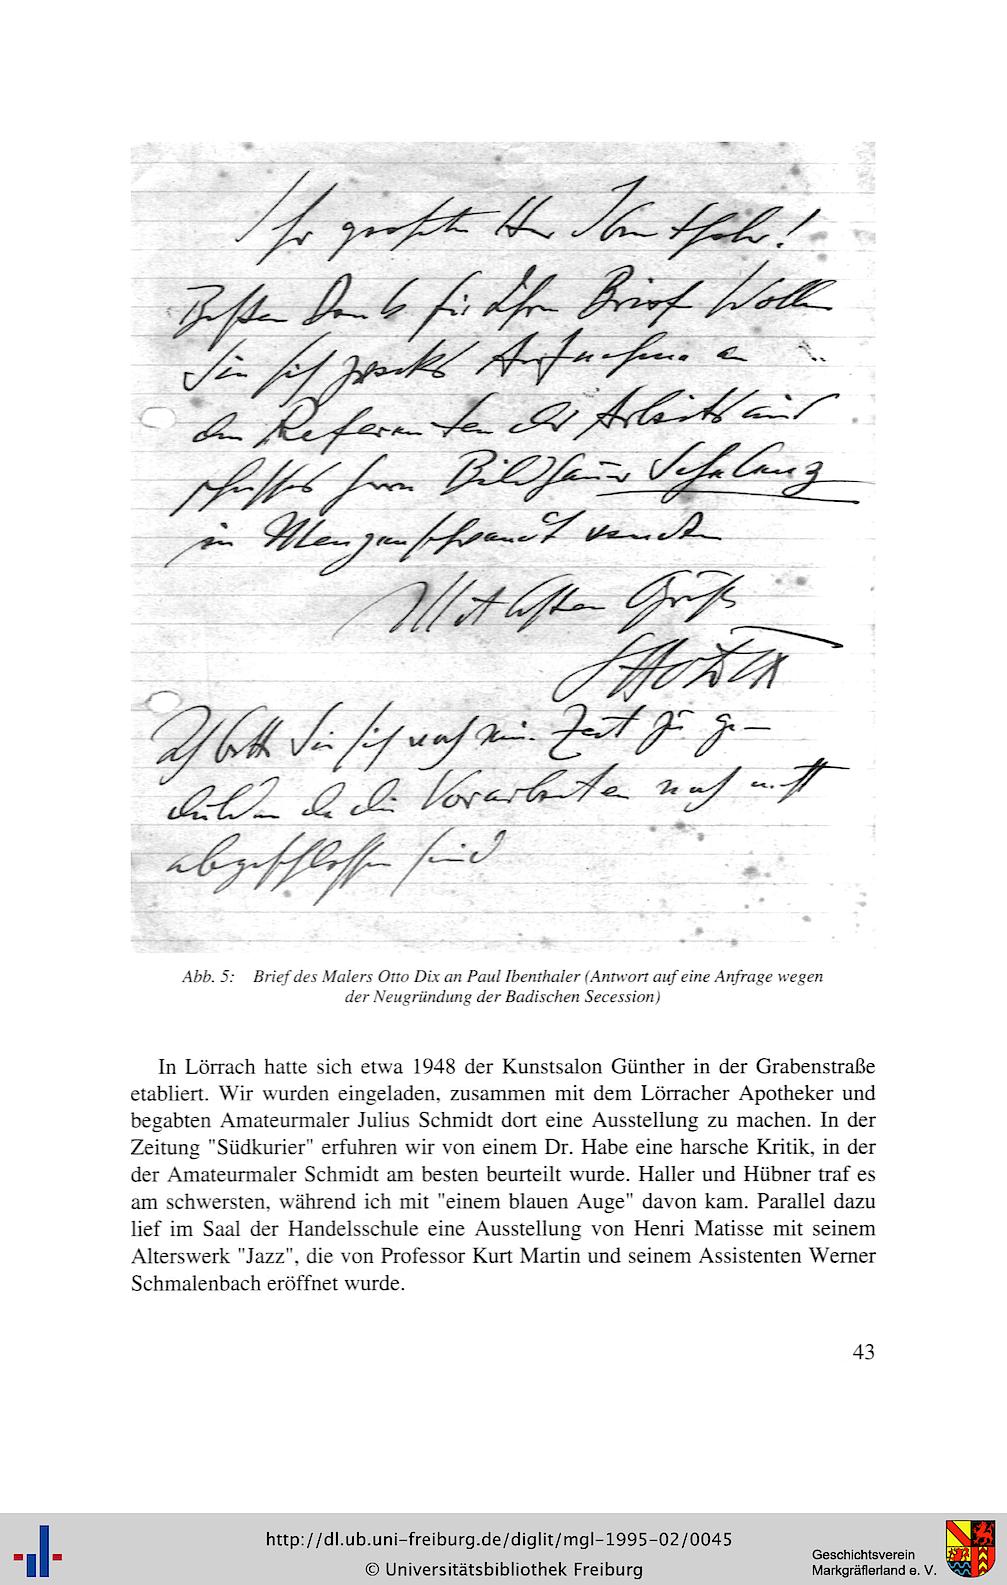 Sehr geehrter Herr Ibenthaler!
Besten Dank für Ihren Brief Wollen
Sie sich zwecks Aufnahme an
den Referenten des Arbeitsaus
schusses Herrn Bildhauer Schelenz
in Menzenschwand wenden
Mit besten Grüßen
Otto Dix
Ich bitte Sie sich noch Zeit zu ge–
dulden da die Vorarbeiten noch nicht
abgeschlossen sind
Abb. 5: Brief des Malers Otto Dix an Paul Ibenthaler (Antwort auf eine Anfrage wegen
der Neugründung der Badischen Secession)
In Lörrach hatte sich etwa 1948 der Kunstsalon Günther in der Grabenstraße
etabliert. Wir wurden eingeladen, zusammen mit dem Lörracher Apotheker und
begabten Amateurmaler Julius Schmidt dort eine Ausstellung zu machen. In der
Zeitung "Südkurier" erfuhren wir von einem Dr. Habe eine harsche Kritik, in der
der Amateurmaler Schmidt am besten beurteilt wurde. Haller und Hübner traf es
am schwersten, während ich mit "einem blauen Auge" davon kam. Parallel dazu
lief im Saal der Handelsschule eine Ausstellung von Henri Matisse mit seinem
Alterswerk "Jazz", die von Professor Kurt Martin und seinem Assistenten Werner
Schmalenbach eröffnet wurde.
43
http://dl.ub.uni-freiburg.de/diglit/mgl-1995-02/0045
© Universitätsbibliothek Freiburg
Geschichtsverein
Markgräflerland e. V.